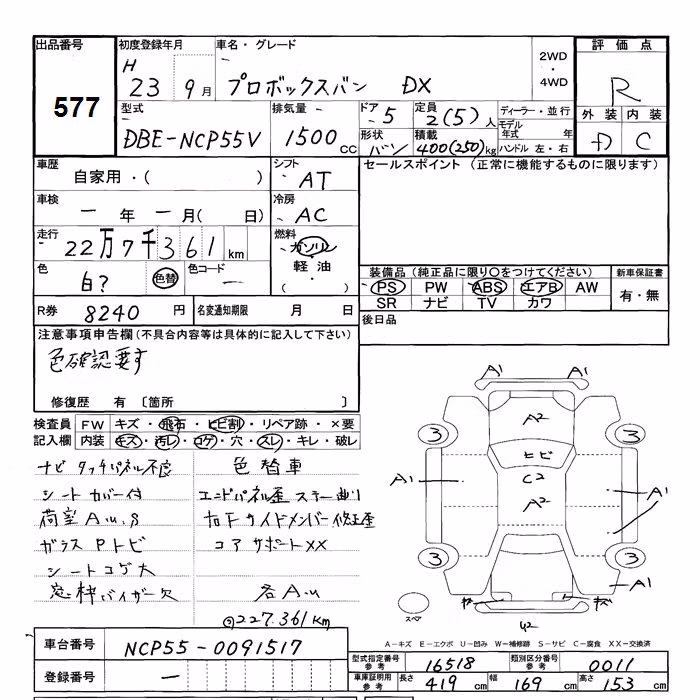 出品番号
577
初度登録年月
H
23 9月
車名・グレード
プロボックスバン DX
2WD
・
4WD
評価点
R
外装 内装
D C
型式
DBE-NCP55V
排気量
1500 CC
ドア
5
定員
2(5)人
形状
バン
積載
400(250)kg
ディーラー・並行
モデル
年式 年
ハンドル 左・右
車歴
自家用・( )
シフト
AT
車検
一年 一月( 日)
冷房
AC
走行
22万7千361 km
燃料
ガソリン
・
軽油
・
( )
色
白?
色替
色コード
一
R券
8240円
名変通知期限 月 日
セールスポイント (正常に機能するものに限ります)
装備品 (純正品に限り○をつけてください)
PS PW ABS エアB AW
SR ナビ TV カワ
新車保証書
有・無
後日品
注意事項申告欄(不具合内容等は具体的に記入して下さい)
色確認要す
修復歴 有 〔箇所 〕
検査員
記入欄
FW キズ・飛石・ヒビ割・リペア跡・×要
内装 キズ・汚レ・コゲ・穴・スレ・キレ・破レ
ナビ タッチパネル不良
シートカバー付
荷室 A.U.S
ガラス Pトビ
シートコゲ大
窓枠バイザー欠
色替車
エンドパネル歪 ステー曲り
右F サイドメンバー修正歪
コアサポートXX
各A.U
◎227.361km
A1 A1
A2
3 3
ヒビ
C2
A1 A1
A2
3 3
A1
U2
スペア
A-キズ E-エクボ U-凹み W-補修跡 S-サビ C-腐食 XX-交換済
車台番号
NCP55-0091517
登録番号
一
型式指定番号
参考
16518
類別区分番号
参考
0011
車庫証明用
参考
長さ 419 cm 幅 169 cm 高さ 153 cm